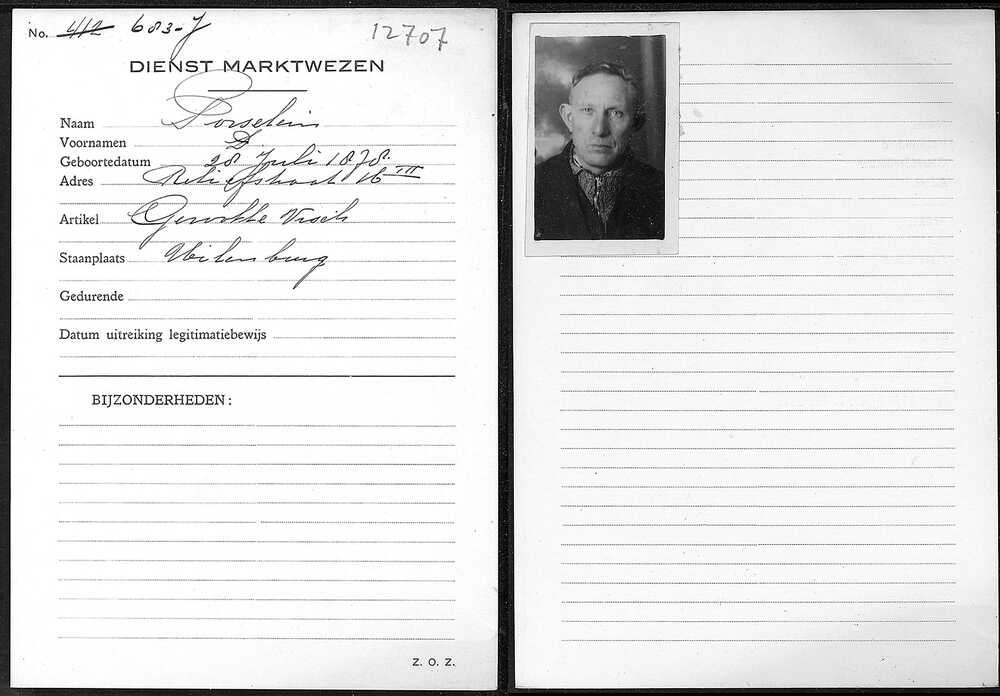 No. 412 683-J 12707
DIENST MARKTWEZEN
Naam Porselein
Voornamen D
Geboortedatum 28 Juli 1878.
Adres Retiefstraat 16 III
Artikel Gerookte Visch
Staanplaats Uilenburg
Gedurende
Datum uitreiking legitimatiebewijs
BIJZONDERHEDEN:
Z. O. Z.